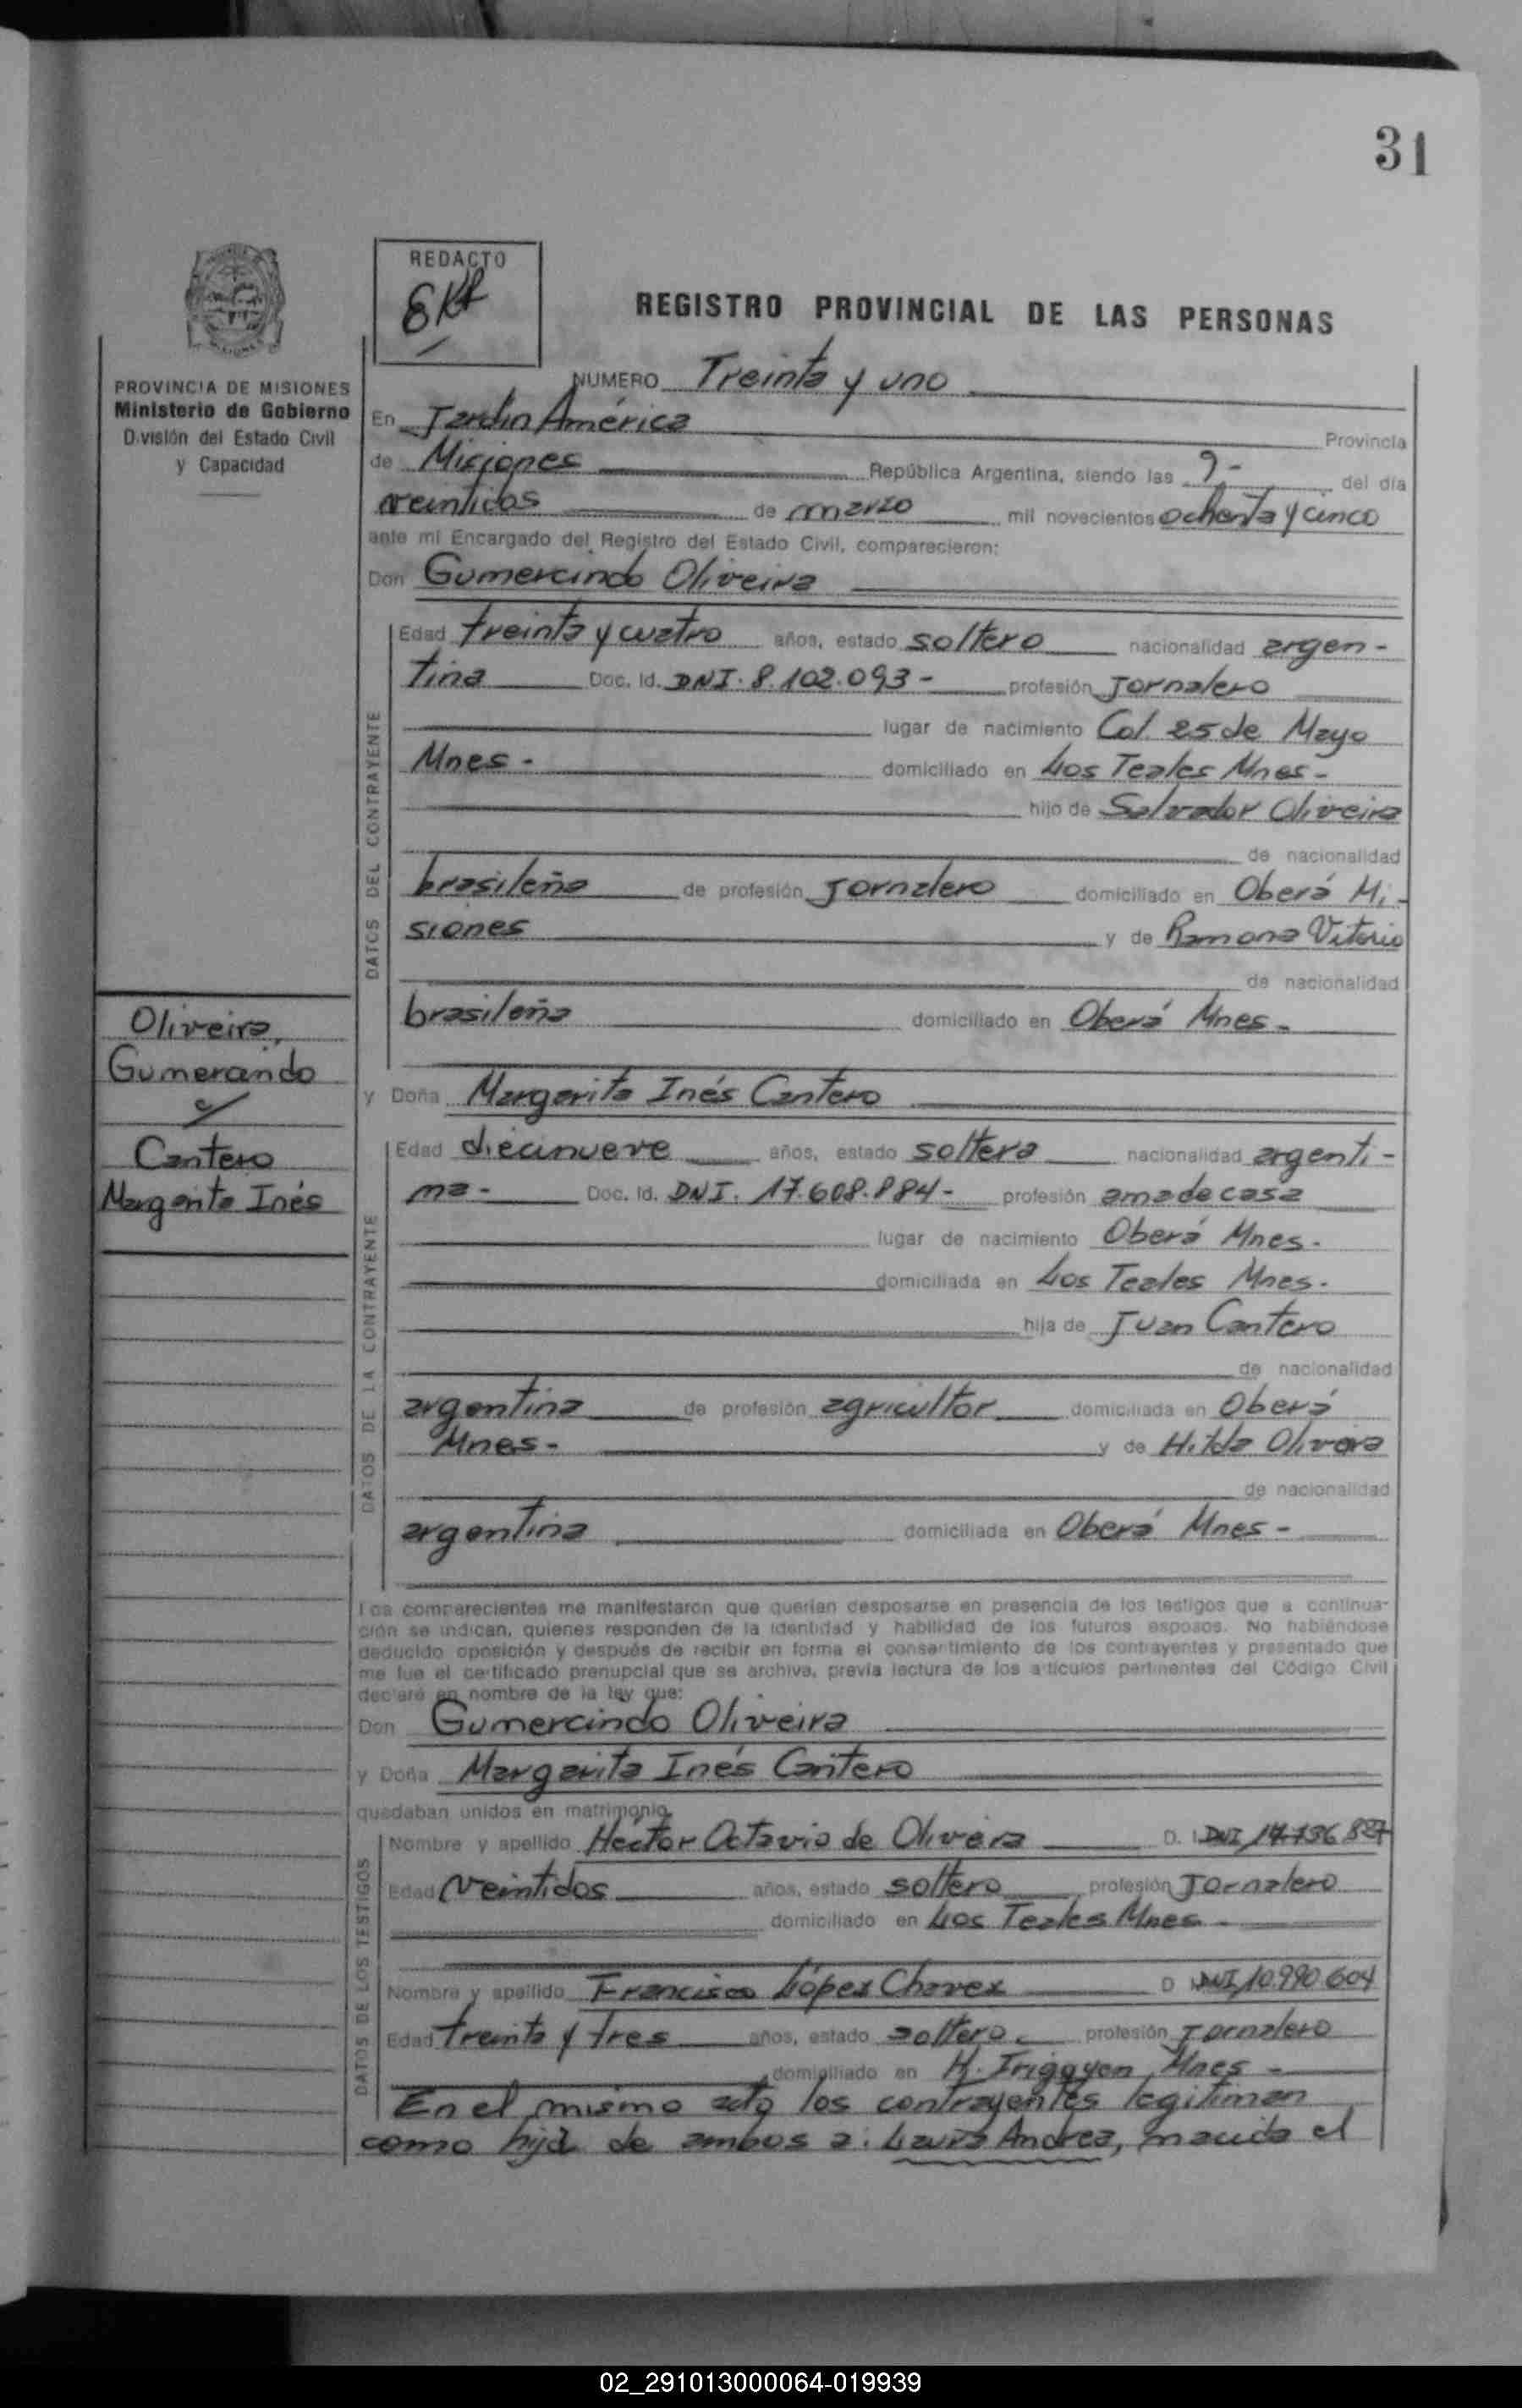 31
REDACTO
REGISTRO PROVINCIAL DE LAS PERSONAS
PROVINCIA DE MISIONES
Ministerio de Gobierno
División del Estado Civil
y Capacidad
NUMERO Treinta y uno
En Jardín América Provincia
de Misiones República Argentina, siendo las 9- del día
veintidos de marzo mil novecientos ochenta y cinco
ante mi Encargado del Registro del Estado Civil, comparecieron:
Don Gumercindo Oliveira
DATOS DEL CONTRAYENTE
Edad treinta y cuatro años, estado soltero nacionalidad argen-
tina Doc. Id. DNI. 8.102.093- profesión Jornalero
lugar de nacimiento Col. 25 de Mayo
Mnes- domiciliado en Los Teales Mnes-
hijo de Salvador Oliveira
de nacionalidad
brasileña de profesión Jornalero domiciliado en Oberá Mi-
siones y de Ramona Vitorio
de nacionalidad
brasileña domiciliado en Oberá Mnes-
Oliveira,
Gumercindo
c/
Cantero
Margarita Inés
y Doña Margarita Inés Cantero
DATOS DE LA CONTRAYENTE
Edad diecinueve años, estado soltera nacionalidad argenti-
na- Doc. Id. DNI. 17.608.884- profesión ama de casa
lugar de nacimiento Oberá Mnes.
domiciliada en Los Teales Mnes.
hija de Juan Cantero
de nacionalidad
argentina de profesión agricultor domiciliada en Oberá
Mnes- y de Hilda Olivera
de nacionalidad
argentina domiciliada en Oberá Mnes-
Los comparecientes me manifestaron que querían desposarse en presencia de los testigos que a continua-
ción se indican, quienes responden de la identidad y habilidad de los futuros esposos. No habiéndose
deducido oposición y después de recibir en forma el consentimiento de los contrayentes y presentado que
me fue el certificado prenupcial que se archiva, previa lectura de los artículos pertinentes del Código Civil
declaré en nombre de la ley que:
Don Gumercindo Oliveira
y Doña Margarita Inés Cantero
quedaban unidos en matrimonio
DATOS DE LOS TESTIGOS
Nombre y apellido Héctor Octavio de Olivera D. I. DNI
Edad Veintidos años, estado soltero profesión Jornalero
domiciliado en Los Teales Mnes-
Nombre y apellido Francisco López Chavez D DNI 10.990.604
Edad treinta y tres años, estado soltero. profesión Jornalero
domiciliado en H. Irigoyen Mnes-
En el mismo acto los contrayentes legitiman
como hija de ambos a: Laura Andrea, nacida el
02_291013000064-019939